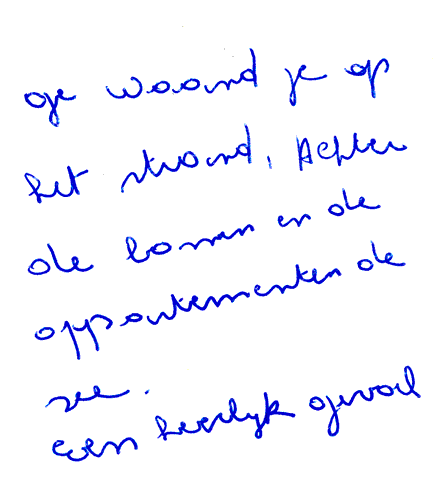 je waand je op
het strand. Achter
de bomen en de
appartementen de
zee.
Een heerlijk gevoel